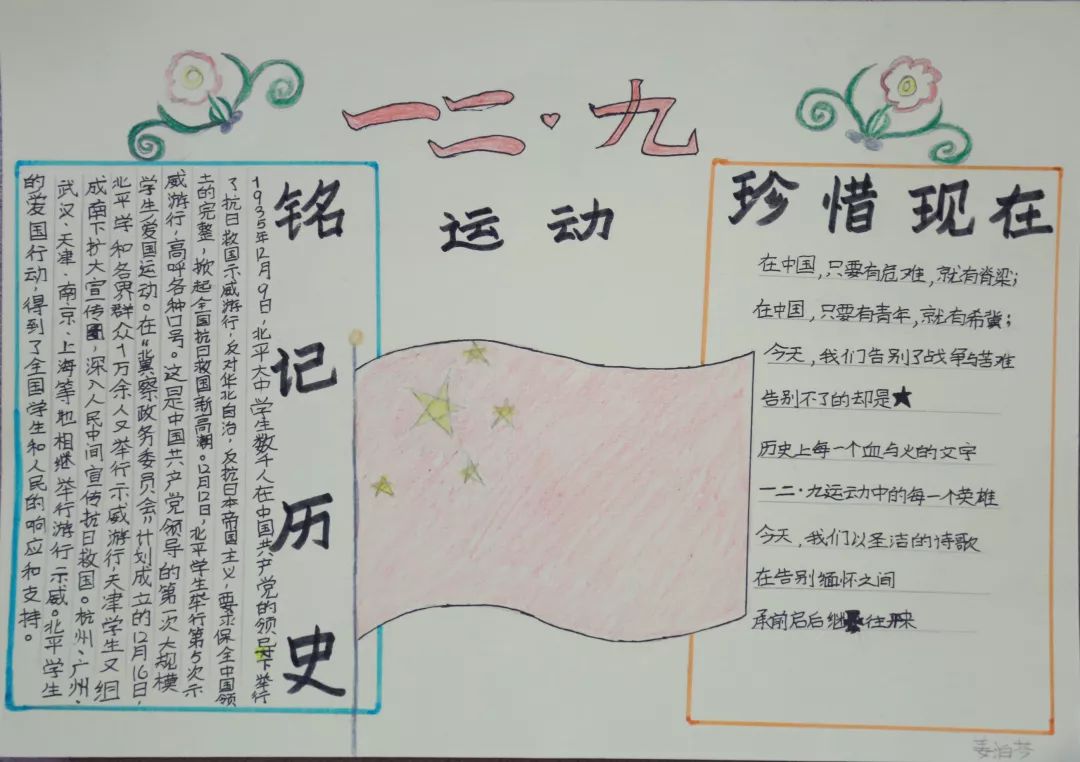 一二·九
运动
铭记历史
1935年12月9日，北平大中学生数千人在中国共产党的领导下举行
了抗日救国示威游行，反对华北自治，反抗日本帝国主义，要求保全中国领
土的完整，掀起全国抗日救国新高潮。12月12日，北平学生举行第5次示
威游行，高呼各种口号。这是中国共产党领导的第一次大规模
学生爱国运动。在“冀察政务委员会”计划成立的12月16日，
北平学和各界群众十万余人又举行示威游行，天津学生又组
成南下扩大宣传团，深入人民中间宣传抗日救国。杭州、广州、
武汉、天津、南京、上海等地相继举行游行示威。北平学生
的爱国行动，得到了全国学生和人民的响应和支持。
珍惜现在
在中国，只要有危难，就有脊梁；
在中国，只要有青年，就有希冀；
今天，我们告别了战争与苦难
告别不了的却是★
历史上每一个血与火的文字
一二·九运动中的每一个英雄
今天，我们以圣洁的诗歌
在告别缅怀之间
承前启后继往开来